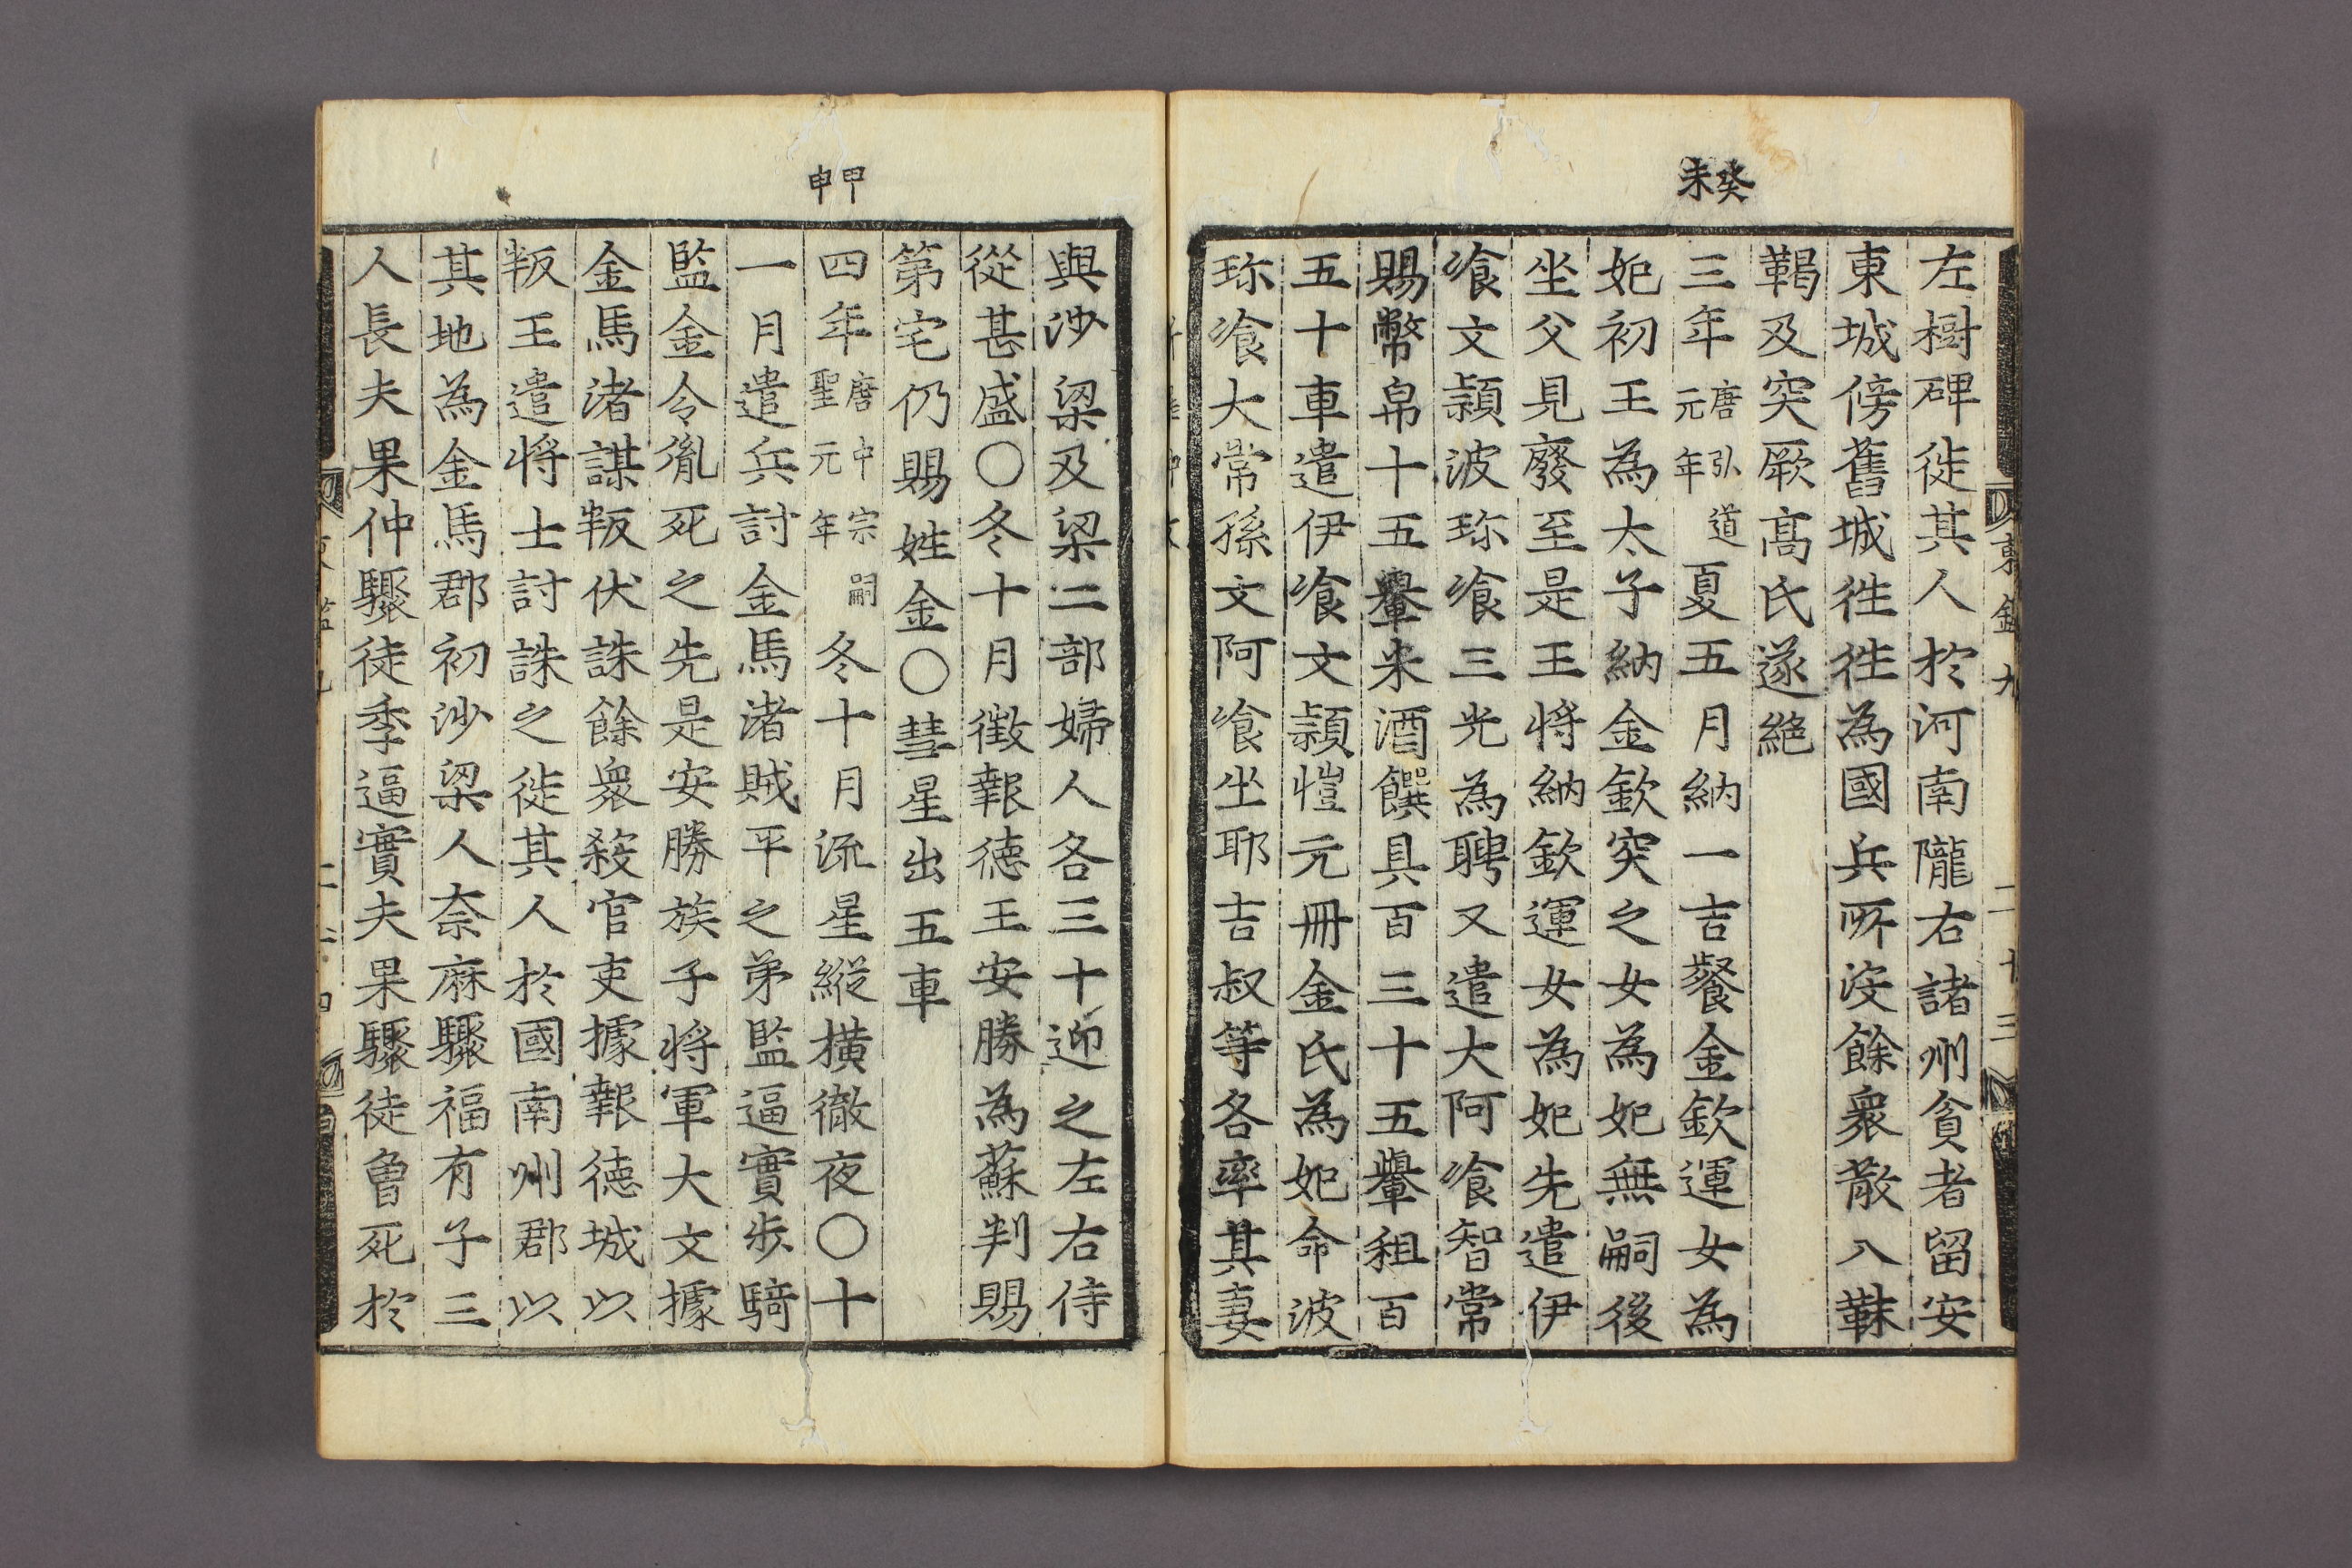 癸未
左樹碑徙其人於河南隴右諸州貧者留安
東城傍舊城徃徃為國兵所沒餘衆散入靺
鞨及突厥髙氏遂絶
三年唐弘道元年夏五月納一吉餐金欽運女為
妃初王為太子納金欽突之女為妃無嗣後
坐父見廢至是王將納欽運女為妃先遣伊
飡文頴波珎飡三光為聘又遣大阿飡智常
賜幣帛十五轝米酒饌具百三十五轝租百
五十車遣伊飡文頴愷元冊金氏為妃命波
珎飡大常孫文阿飡坐耶吉叔等各率其妻
甲申
與沙梁及梁二部婦人各三十迎之左右侍
從甚盛○冬十月徵報德王安勝為蘇判賜
第宅仍賜姓金○彗星出五車
四年唐中宗嗣聖元年冬十月流星縱橫徹夜○十
一月遣兵討金馬渚賊平之弟監逼實步騎
監金令胤死之先是安勝族子將軍大文據
金馬渚謀叛伏誅餘衆殺官吏據報德城以
叛王遣將士討誅之徙其人於國南州郡以
其地為金馬郡初沙梁人奈麻驟福有子三
人長夫果仲驟徒季逼實夫果驟徒曾死於